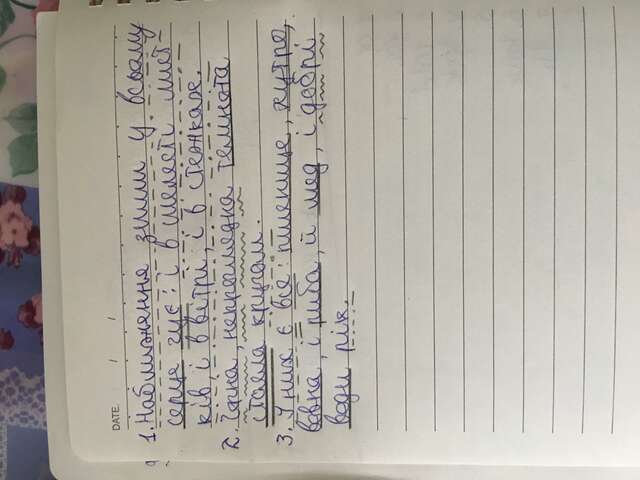 DATE / /
1. Наближення зими у всьому
серце чує: і в шелесті лист-
ків і в вітрі, і в стежках.
2. Чорна, непроглядна темнота
стояла кругом.
3. У них є все: пшениця, хутра,
вовна, і риба, й мед, і добрі
води рік.